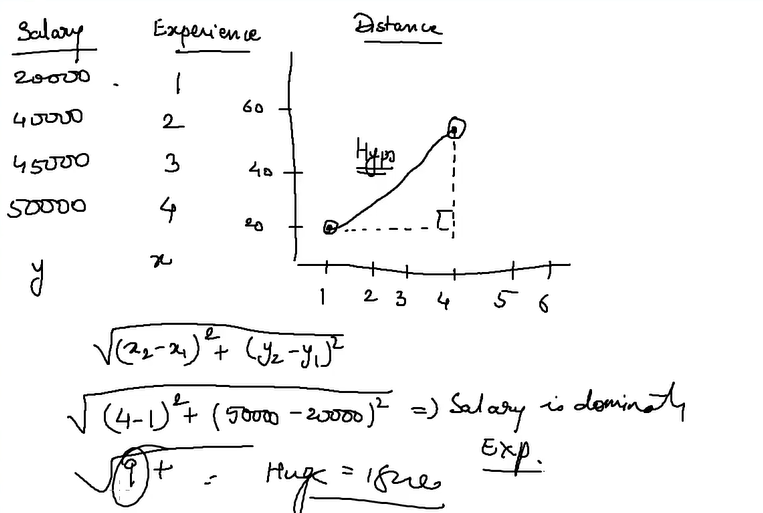 Salary Experience Distance
20000 1
40000 2
45000 3
50000 4
y x
60
40
20
Hypo
1 2 3 4 5 6
√(x₂-x₁)² + (y₂-y₁)²
√(4-1)² + (50000-20000)² => Salary is dominatly
Exp.
√9 + = Huge =